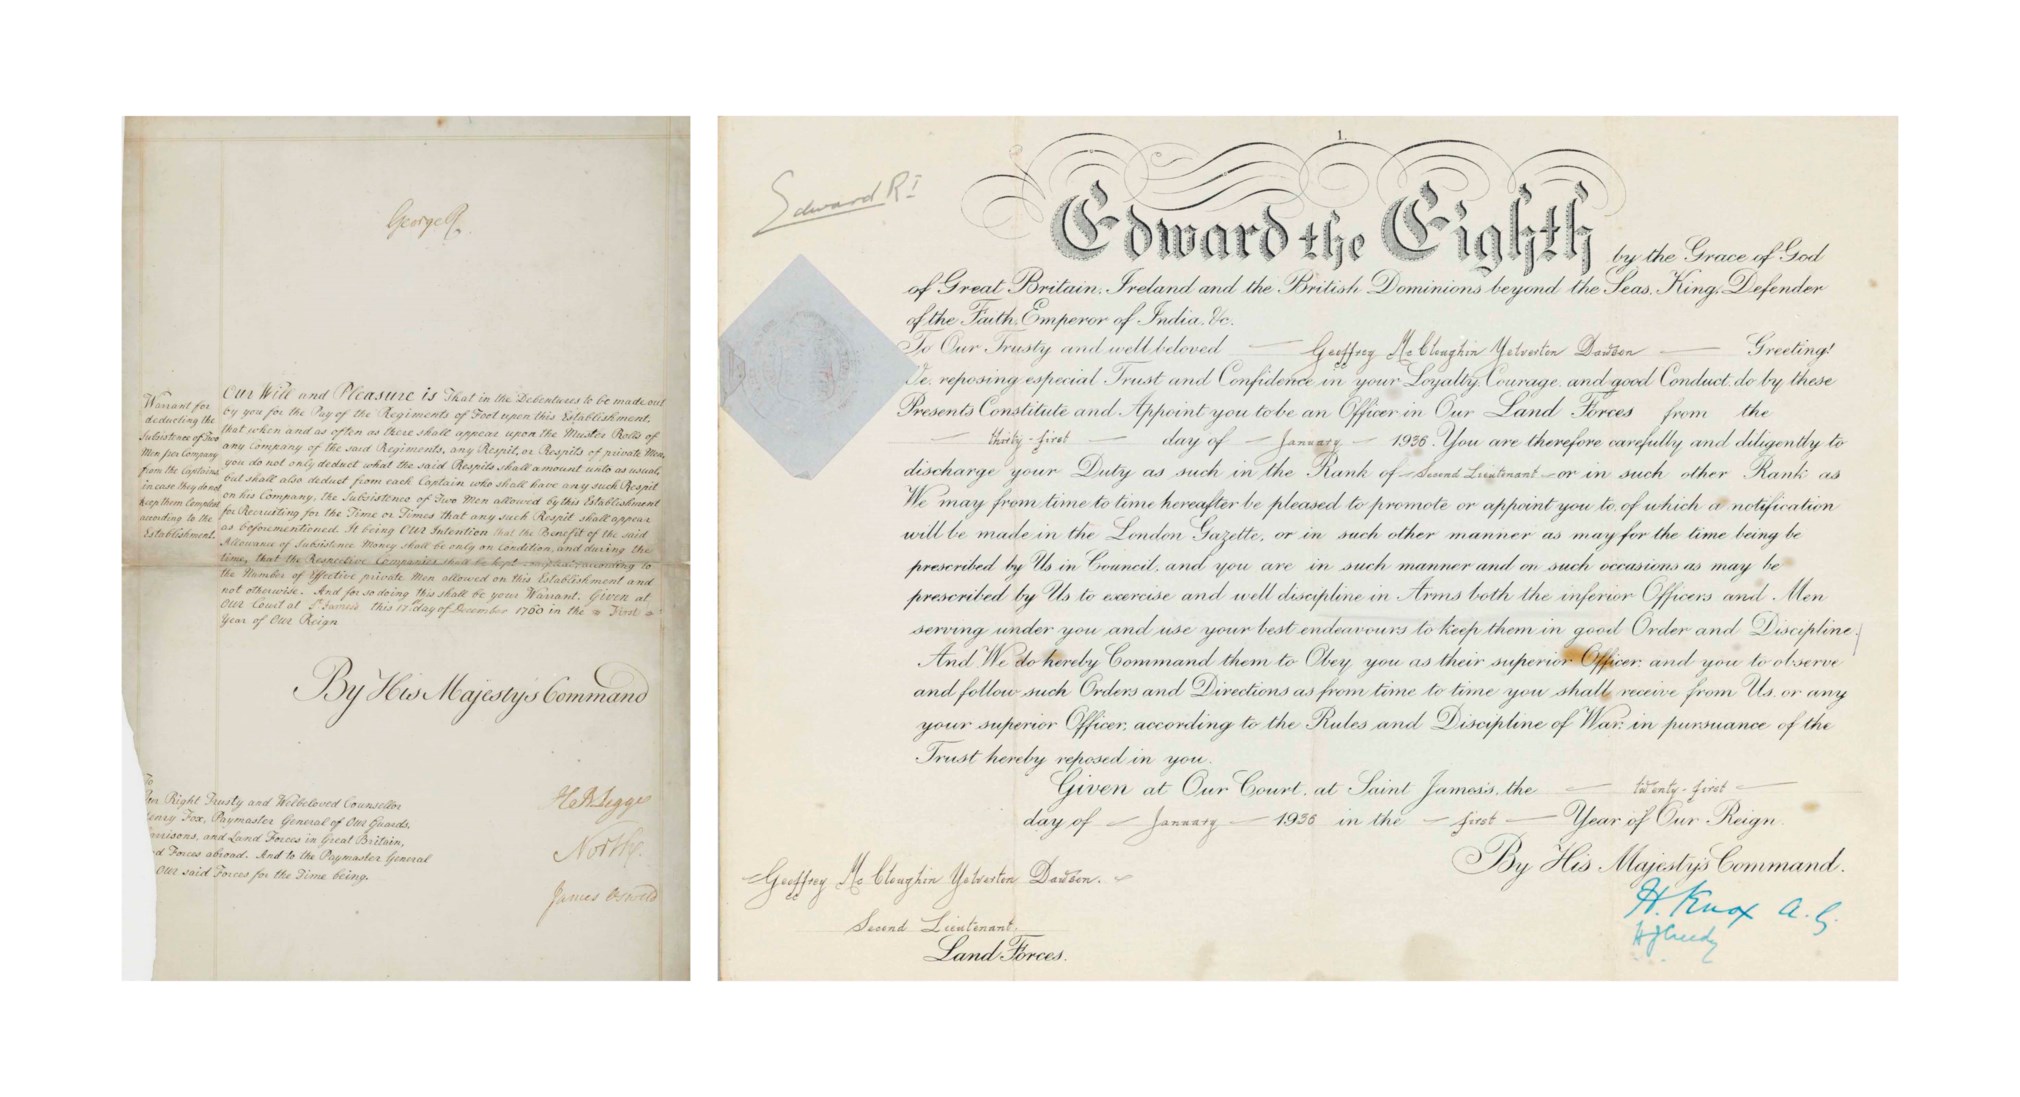 George R.
Warrant for
deducting the
Subsistence of Two
Men per Company
from the Captains
in case they do not
keep them Compleat
according to the
Establishment.
Our Will and Pleasure is That in the Debentures to be made out
by you for the Pay of the Regiments of Foot upon this Establishment,
that when and as often as there shall appear upon the Muster Rolls of
any Company of the said Regiments, any Respit, or Respits of private Men,
you do not only deduct what the said Respits shall amount unto as usual,
but shall also deduct from each Captain who shall have any such Respit
on his Company, the Subsistence of Two Men allowed by this Establishment
for Recruiting for the Time or Times that any such Respit shall appear
as beforementioned. It being Our Intention that the Benefit of the said
Allowance of Subsistence Money shall be only on Condition, and during the
time, that the Respective Companies shall be kept compleat according to
the Number of Effective private Men allowed on this Establishment and
not otherwise. And for so doing this shall be your Warrant. Given at
Our Court at St. James's this 17th day of December 1760 in the First
Year of Our Reign
By His Majesty's Command
To
Our Right Trusty and Welbeloved Counsellor
Henry Fox, Paymaster General of Our Guards,
Garrisons, and Land Forces in Great Britain,
and Forces abroad. And to the Paymaster General
of Our said Forces for the Time being.
H B Legge
North.
James Oswald
1.
Edward R I
Edward the Eighth by the Grace of God
of Great Britain, Ireland and the British Dominions beyond the Seas, King, Defender
of the Faith, Emperor of India, &c.
To Our Trusty and well beloved Geoffrey McCloughin Yelverton Dawson Greeting!
We, reposing especial Trust and Confidence in your Loyalty, Courage, and good Conduct, do by these
Presents Constitute and Appoint you to be an Officer in Our Land Forces from the
thirty-first day of January 1936. You are therefore carefully and diligently to
discharge your Duty as such in the Rank of Second Lieutenant or in such other Rank as
We may from time to time hereafter be pleased to promote or appoint you to, of which a notification
will be made in the London Gazette, or in such other manner as may for the time being be
prescribed by Us in Council, and you are in such manner and on such occasions as may be
prescribed by Us to exercise and well discipline in Arms both the inferior Officers and Men
serving under you and use your best endeavours to keep them in good Order and Discipline.
And We do hereby Command them to Obey you as their superior Officer, and you to observe
and follow such Orders and Directions as from time to time you shall receive from Us, or any
your superior Officer, according to the Rules and Discipline of War, in pursuance of the
Trust hereby reposed in you.
Given at Our Court, at Saint James's, the twenty-first
day of January 1936 in the first Year of Our Reign.
By His Majesty's Command.
Geoffrey McCloughin Yelverton Dawson.
Second Lieutenant.
Land Forces.
H. Knox A. G.
H J Creedy